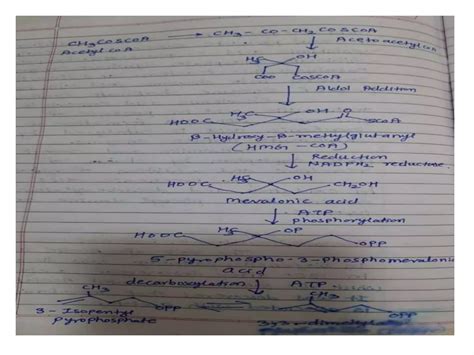 CH3COSCOA → CH3 - CO - CH2COSCOA
Acetyl CoA Acetoacetyl CoA
H3C OH
COO COSCOA
↓ Aldol Addition
HOOC H3C OH O SCOA
β-Hydroxy-β-methylglutaryl
(HMG - COA)
↓ Reduction
NADPH2 reductase
HOOC H3C OH CH2OH
Mevalonic acid
↓ ATP
phosphorylation
HOOC H3C OP OPP
5-pyrophospho-3-phosphomevalonic
acid
decarboxylation ↓ ATP
CH3 OPP CH3 OPP
3-Isopentyl
pyrophosphate